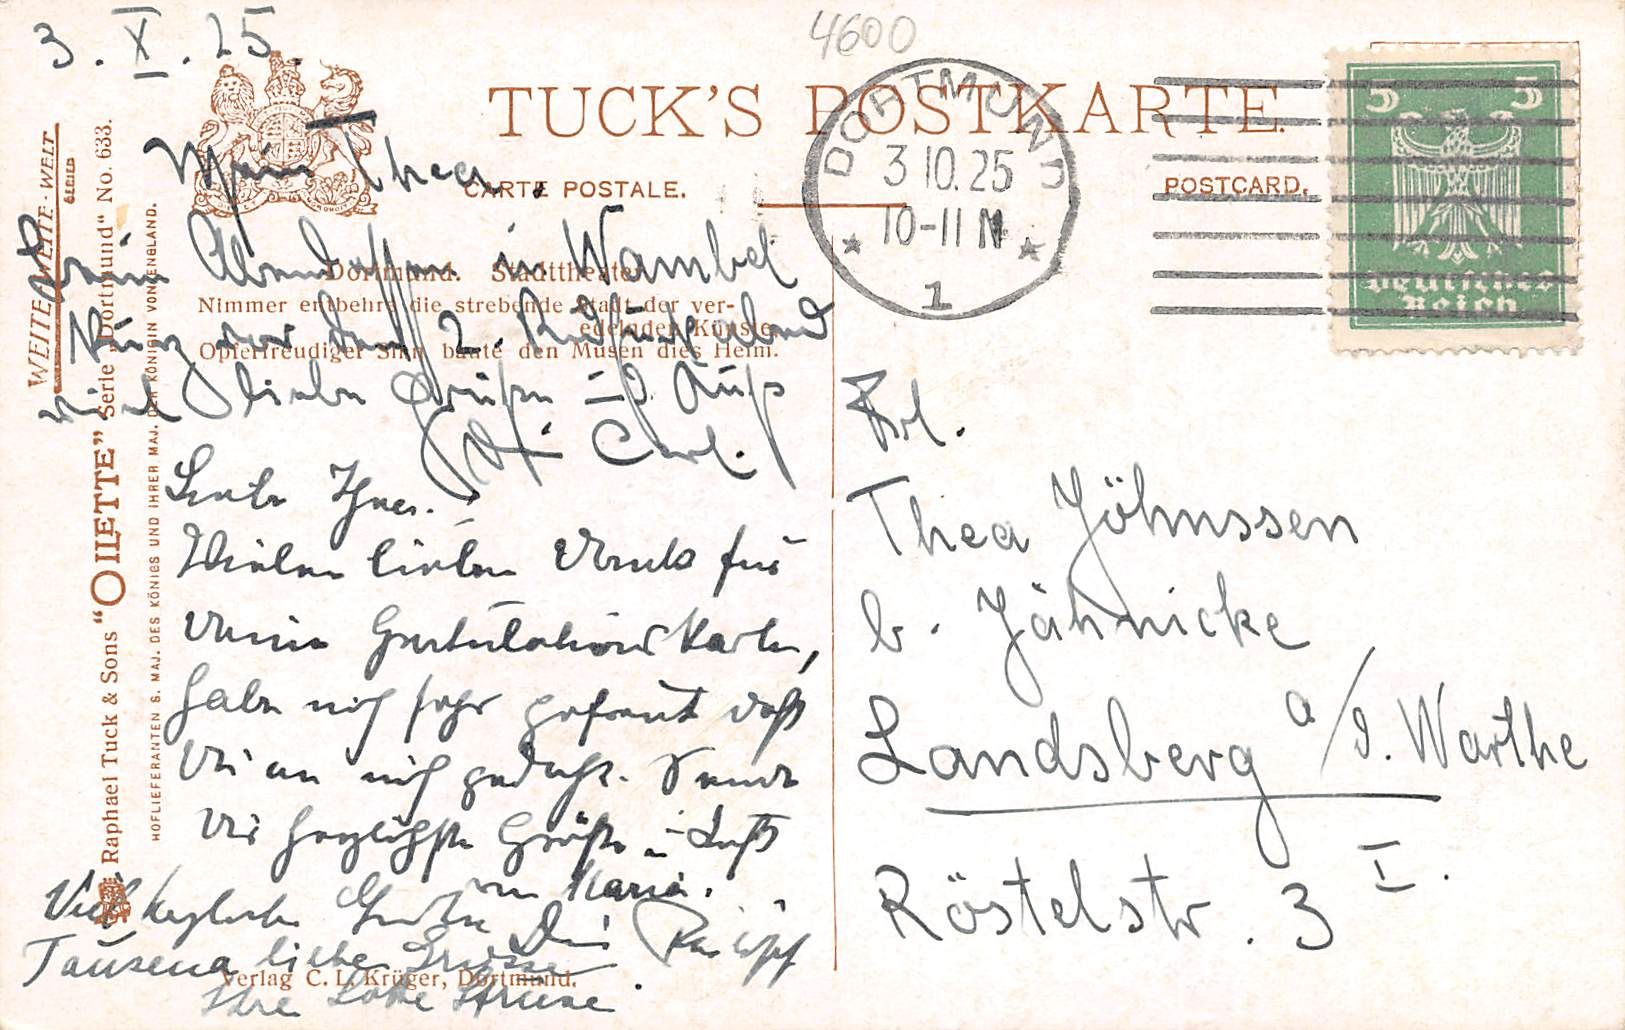 3. X. 25.
4600
TUCK'S POSTKARTE.
CARTE POSTALE.
POSTCARD.
DORTMUND
3 10. 25
10-11 N
1
5 5
Deutsches
Reich
WEITE-WEITE-WELT
SERIES
Raphael Tuck & Sons "OILETTE" Serie „Dortmund“ No. 633.
HOFLIEFERANTEN S. MAJ. DES KÖNIGS UND IHRER MAJ. DER KÖNIGIN VON ENGLAND.
Dortmund. Stadttheater.
Nimmer entbehre die strebende Stadt der ver-
edelnden Künste
Opferfreudiger Sinn baute den Musen dies Heim.
Mein Thea,
Beim Abendessen in Wambel
Kurz vor dem 2.
viel liebe Grüße u. Kuß
Dein Carl.
Liebe Thea.
Vielen lieben Dank für
Deine Gratulationskarte,
habe mich sehr gefreut daß
Du an mich gedacht. Sende
Dir herzlichste Grüße u. Kuß
von Maria.
Viel herzliche Grüße Dein
Tausend liebe Grüsse
Ihre Lotte
Verlag C. L. Krüger, Dortmund.
Frl.
Thea Jöhnssen
b. Jähnicke
Landsberg a/d. Warthe
Röstelstr. 3 I.